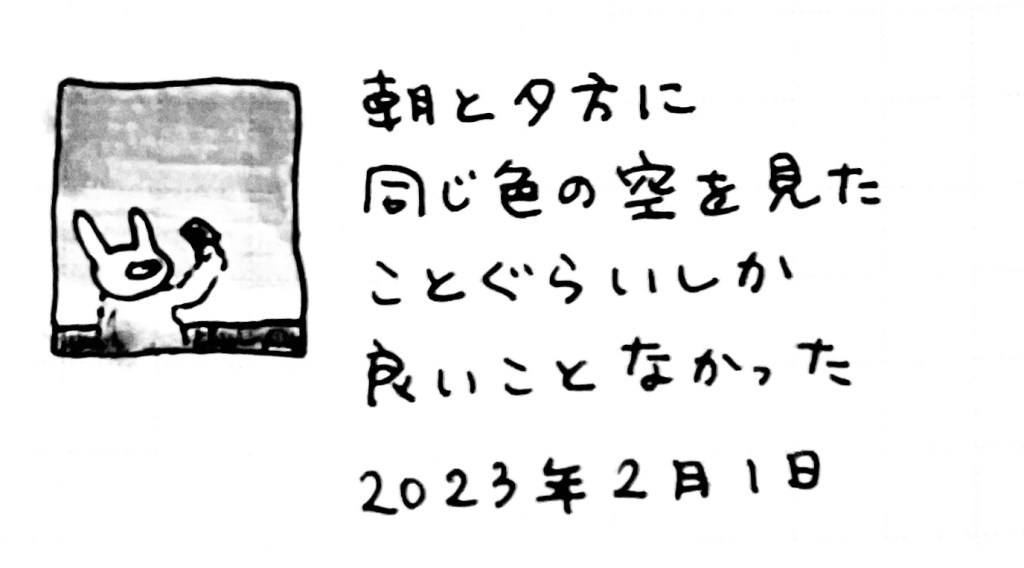 朝と夕方に
同じ色の空を見た
ことぐらいしか
良いことなかった
2023年2月1日